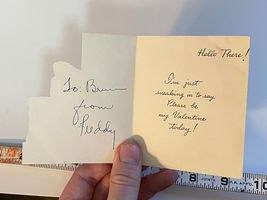 To: Brian
from
Freddy
Hello There!
I'm just
sneaking in to say
Please be
my Valentine
today!
8 9 10